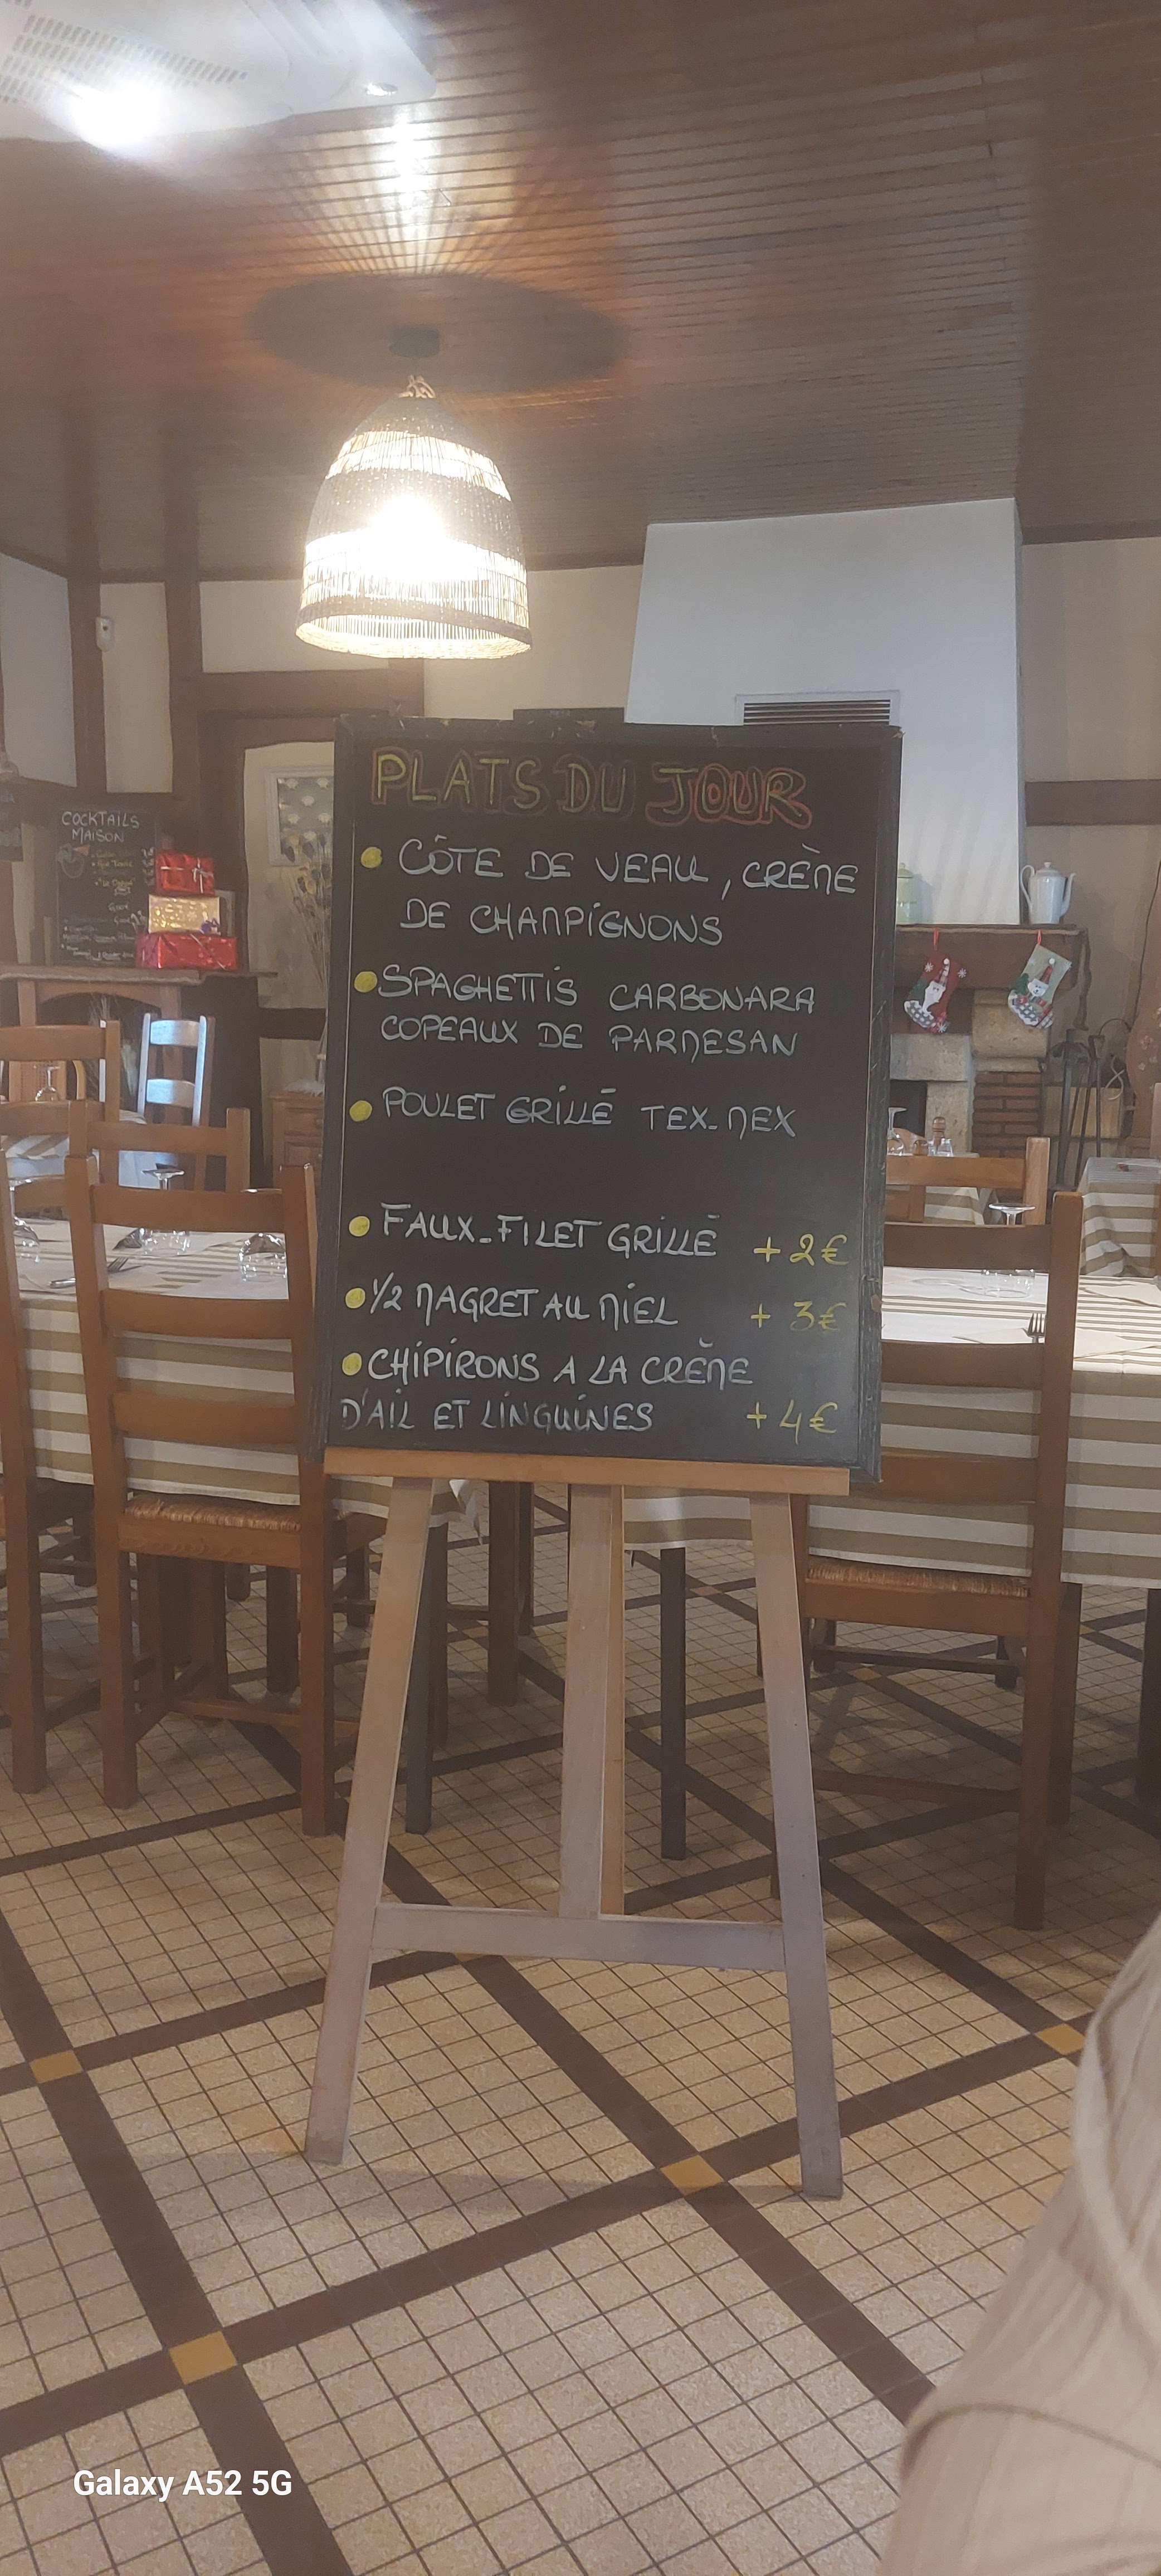 PLATS DU JOUR
CÔTE DE VEAU, CRÈME
DE CHAMPIGNONS
SPAGHETTIS CARBONARA
COPEAUX DE PARMESAN
POULET GRILLÉ TEX-MEX
FAUX-FILET GRILLÉ +2€
1/2 MAGRET AU MIEL +3€
CHIPIRONS A LA CRÈME
D'AIL ET LINGUINES +4€
COCKTAILS
MAISON
Galaxy A52 5G